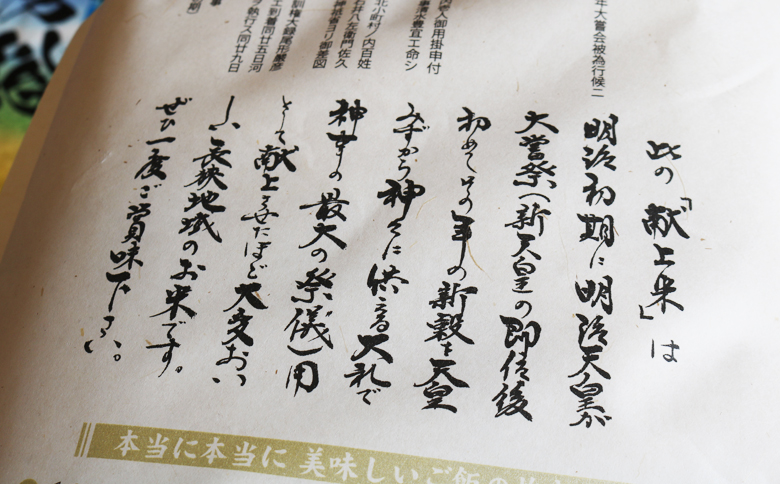 年大嘗会被為行候ニ
御用掛申付
豊宜エ命シ
北小町村ノ内百姓
石村八左衛門佐久
此の「献上米」は
明治初期に明治天皇が
大嘗祭(新天皇の即位後
初めてその年の新穀を天皇
みずから神々に供える大礼で
神事の最大の祭儀)用
として献上させたほど大変おい
しい長狭地域のお米です。
ぜひ一度ご賞味下さい。
本当に本当に 美味しいご飯の